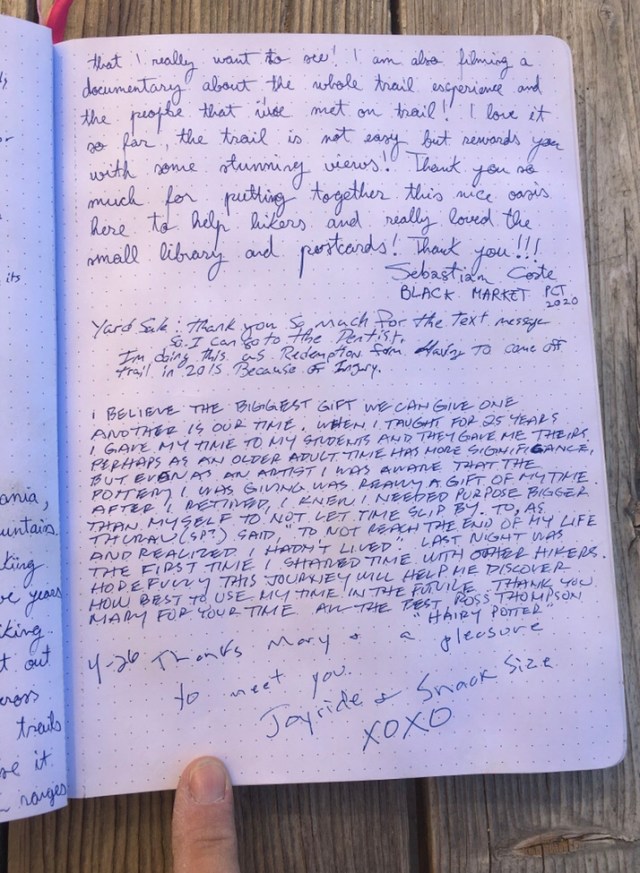 that I really want to see! I am also filming a
documentary about the whole trail experience and
the people that I've met on trail! I love it
so far, the trail is not easy but rewards you
with some stunning views! Thank you so
much for putting together this nice oasis
here to help hikers and really loved the
small library and postcards! Thank you!!!
Sebastian Coste
BLACK MARKET PCT
2020
Yard Sale: Thank you so much for the text message
so I can go to the Dentist.
I'm doing this as Redemption from Having to come off
trail in 2015 Because of Injury.
I BELIEVE THE BIGGEST GIFT WE CAN GIVE ONE
ANOTHER IS OUR TIME. WHEN I TAUGHT FOR 25 YEARS
I GAVE MY TIME TO MY STUDENTS AND THEY GAVE ME THEIRS.
PERHAPS AS AN OLDER ADULT TIME HAS MORE SIGNIFIGANCE,
BUT EVEN AS AN ARTIST I WAS AWARE THAT THE
POTTERY I WAS GIVING WAS REALLY A GIFT OF MY TIME.
AFTER I RETIRED, I KNEW I NEEDED PURPOSE BIGGER
THAN MYSELF TO NOT LET TIME SLIP BY. TO, AS
(SP?) SAID, "TO NOT REACH THE END OF MY LIFE
AND REALIZED I HADN'T LIVED". LAST NIGHT WAS
THE FIRST TIME I SHARED TIME WITH OTHER HIKERS.
HOPEFULLY THIS JOURNEY WILL HELP ME DISCOVER
HOW BEST TO USE MY TIME IN THE FUTURE. THANK YOU
MARY FOR YOUR TIME. ALL THE BEST, ROSS THOMPSON
"HAIRY POTTER"
4-26 Thanks Mary a pleasure
to meet you.
Joyride & Snack Size
XOXO
its
ania,
untains.
king
ve years
king.
t out
cross
trails
ve it
ranges